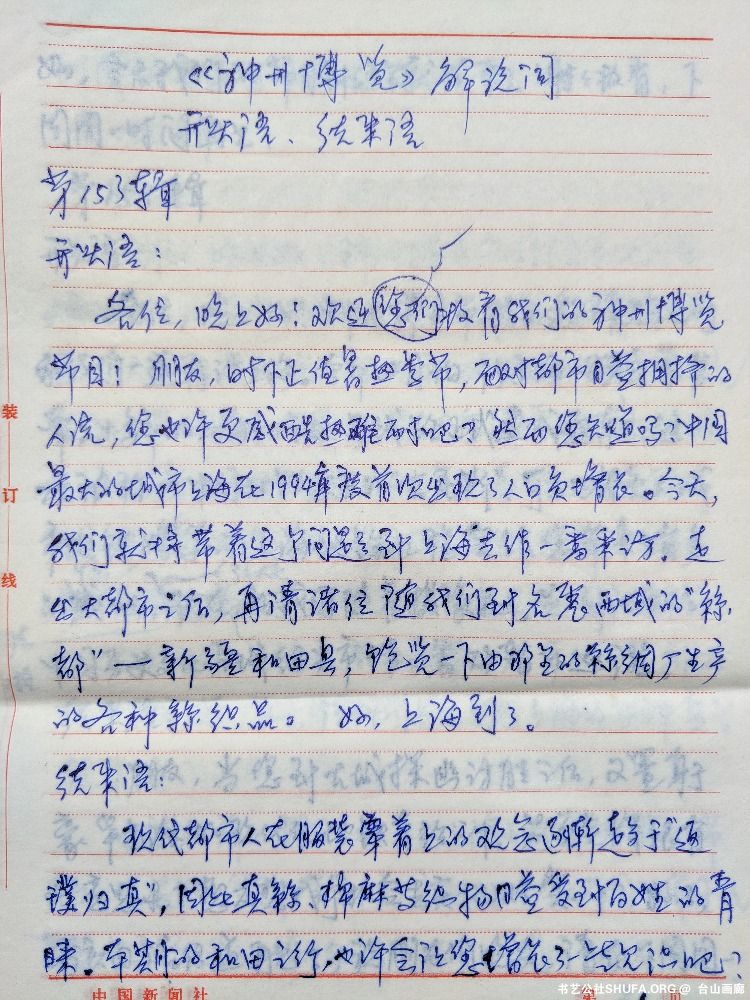 《神州博览》解说词
开头语、结束语
第153辑
开头语：
各位，晚上好！欢迎您们收看我们的神州博览
节目！朋友，时下正值暑热季节，面对都市日益拥挤的
人流，您也许更感酷热难耐吧？然而您知道吗？中国
最大的城市上海在1994年度首次出现了人口负增长。今天，
我们就将带着这个问题到上海去作一番采访。走
出大都市之后，再请诸位随我们到名震西域的“丝
都”—新疆和田县，饱览一下由那里的丝绸厂生产
的各种丝织品。 好，上海到了。
结束语：
现代都市人在服装穿着上的观念逐渐趋于“返
璞归真”，因此真丝、棉麻等织物日益受到百姓的青
睐。本期的和田之行，也许会让您增长了一些见识吧？
装
订
线
中国新闻社
书艺公社SHUFA.ORG @ 台山画廊